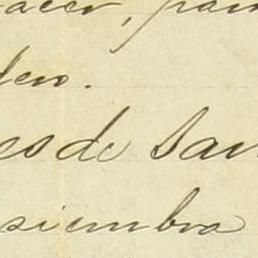 acer, para
den.
eo de San
siembra